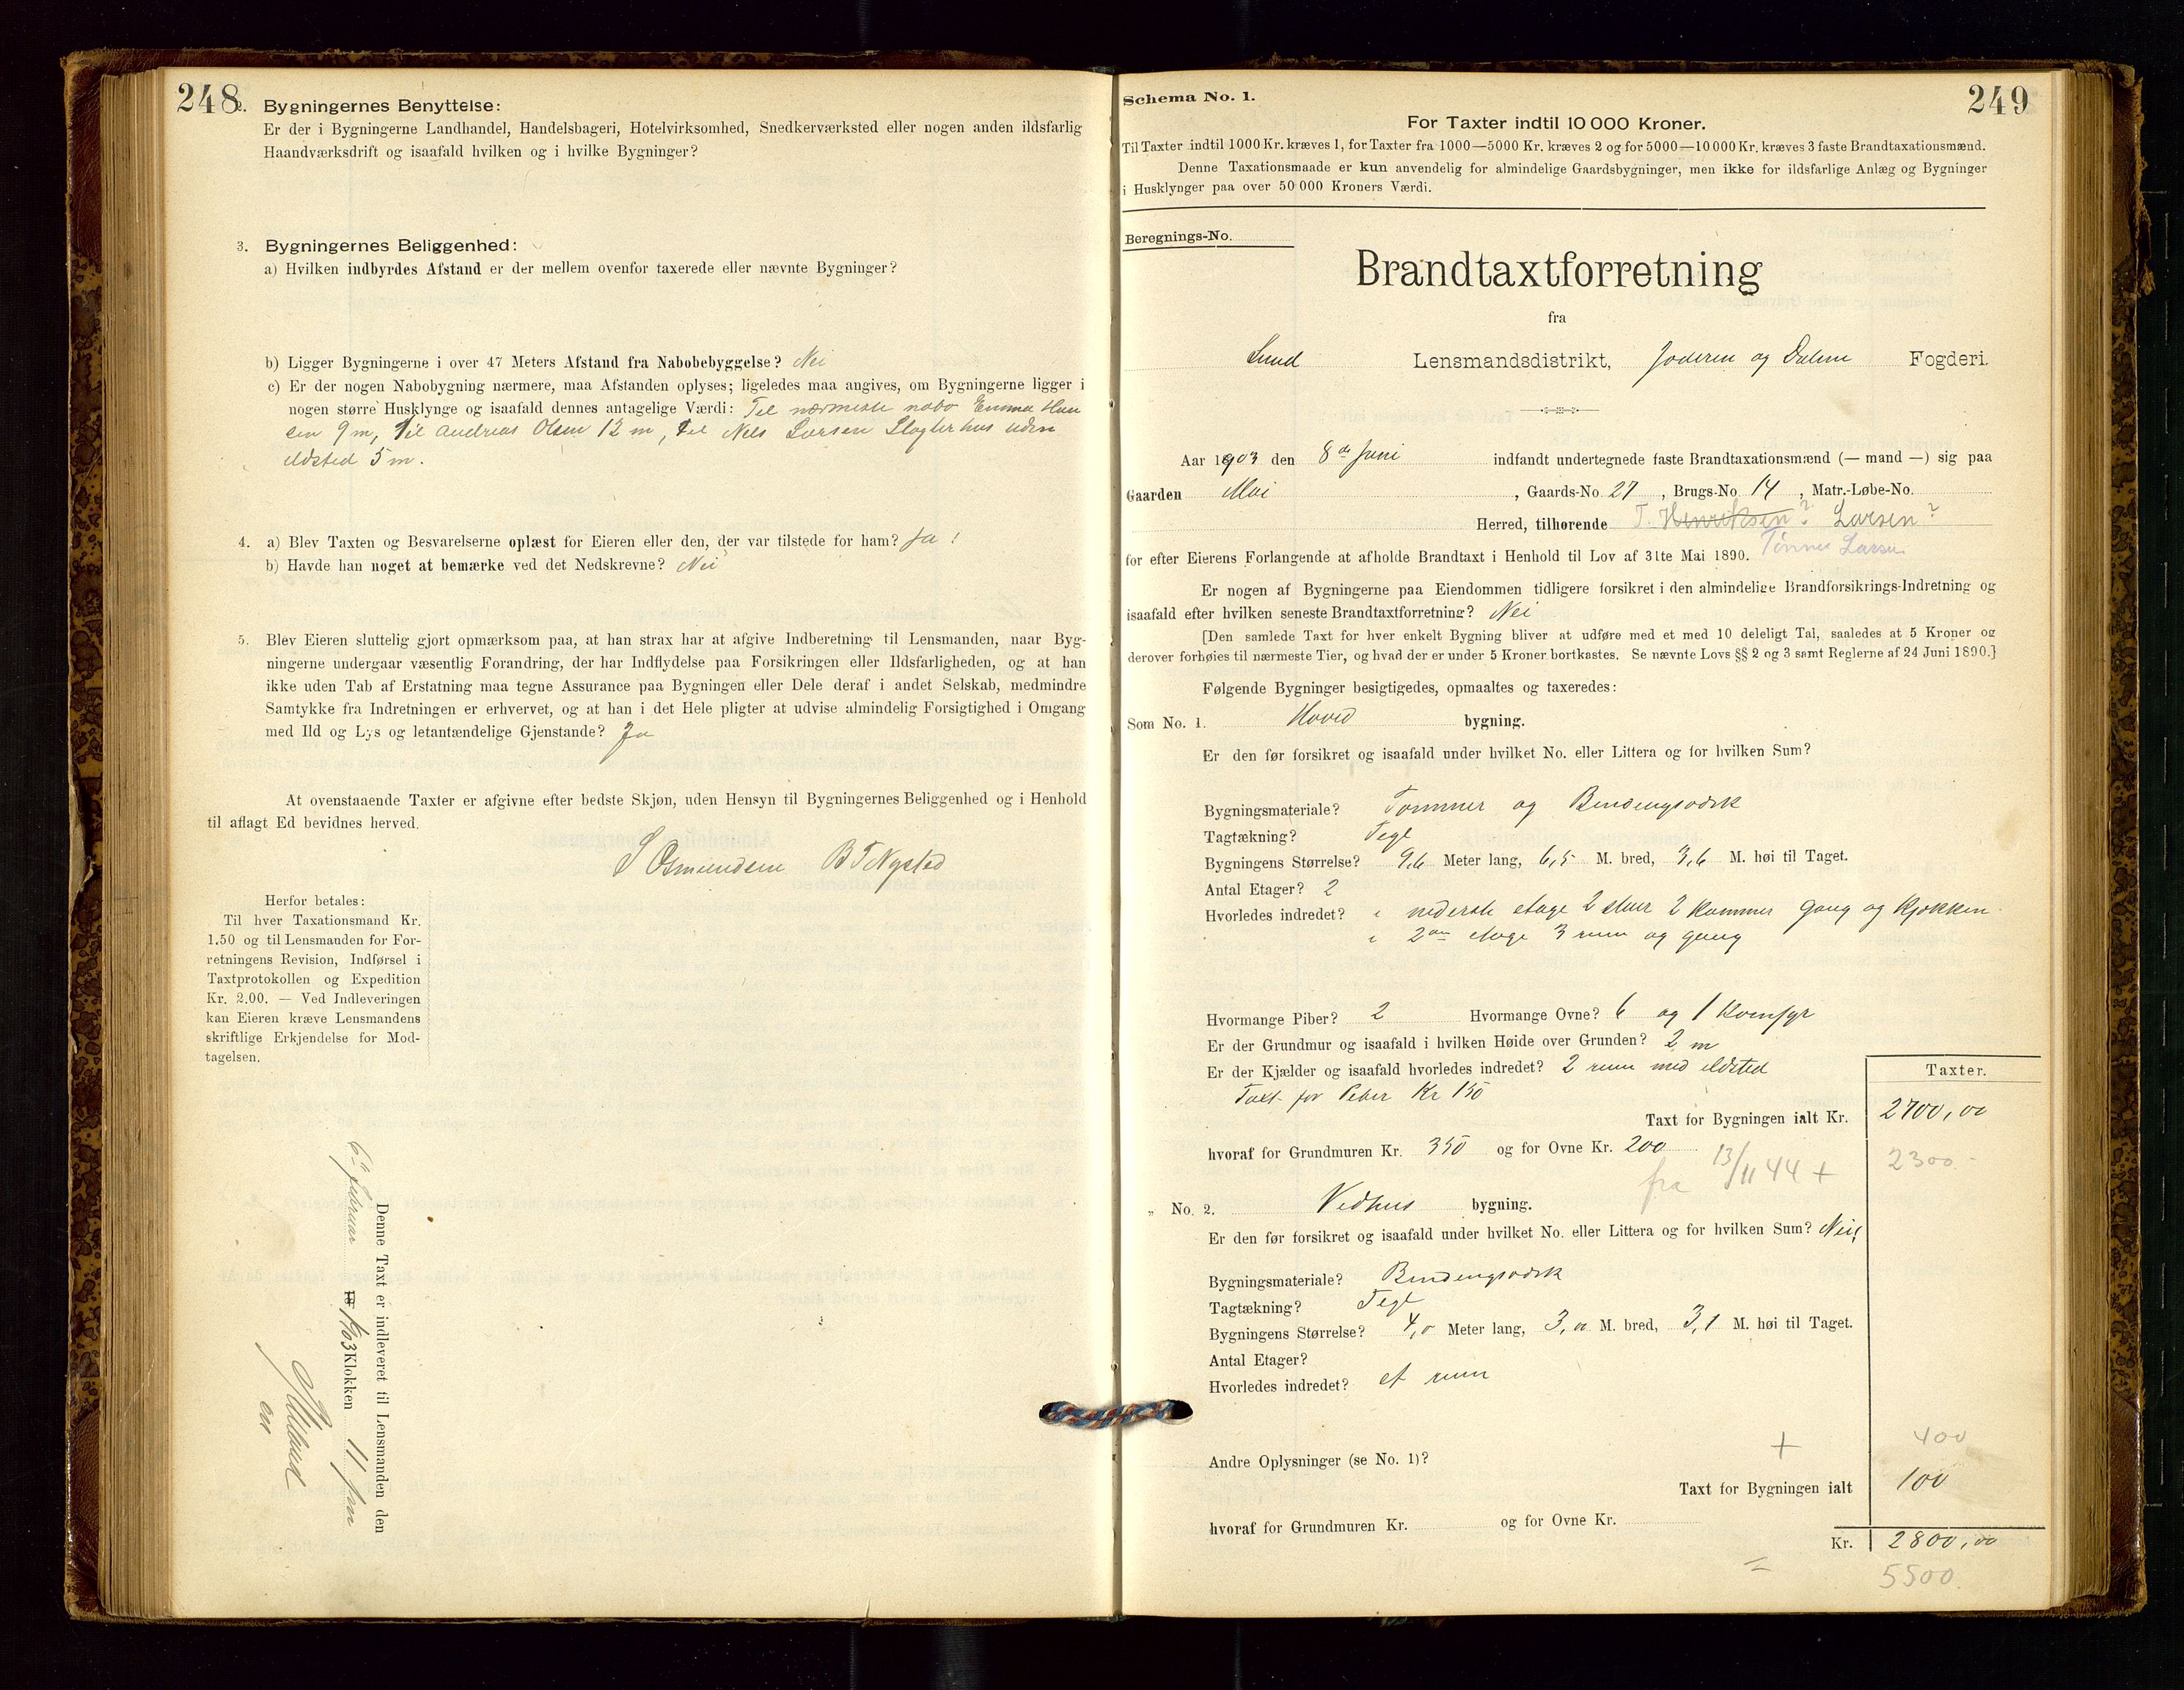 248
2. Bygningernes Benyttelse:
Er der i Bygningerne Landhandel, Handelsbageri, Hotelvirksomhed, Snedkerværksted eller nogen anden ildsfarlig
Haandværksdrift og isaafald hvilken og i hvilke Bygninger?
3. Bygningernes Beliggenhed:
a) Hvilken indbyrdes Afstand er der mellem ovenfor taxerede eller nævnte Bygninger?
b) Ligger Bygningerne i over 47 Meters Afstand fra Nabobebyggelse? Nei
c) Er der nogen Nabobygning nærmere, maa Afstanden oplyses; ligeledes maa angives, om Bygningerne ligger i
nogen større Husklynge og isaafald dennes antagelige Værdi: Til nærmeste nabo Emma Han
sen 9 m, til Andreas Olsen 12 m, til Nils Larsen Slagterhus uden
ildsted 5 m.
4. a) Blev Taxten og Besvarelserne oplæst for Eieren eller den, der var tilstede for ham? Ja!
b) Havde han noget at bemærke ved det Nedskrevne? Nei
5. Blev Eieren sluttelig gjort opmærksom paa, at han strax har at afgive Indberetning til Lensmanden, naar Byg-
ningerne undergaar væsentlig Forandring, der har Indflydelse paa Forsikringen eller Ildsfarligheden, og at han
ikke uden Tab af Erstatning maa tegne Assurance paa Bygningen eller Dele deraf i andet Selskab, medmindre
Samtykke fra Indretningen er erhvervet, og at han i det Hele pligter at udvise almindelig Forsigtighed i Omgang
med Ild og Lys og letantændelige Gjenstande? Ja
At ovenstaaende Taxter er afgivne efter bedste Skjøn, uden Hensyn til Bygningernes Beliggenhed og i Henhold
til aflagt Ed bevidnes herved.
S Osmundsen B T Nysted
Herfor betales:
Til hver Taxationsmand Kr.
1.50 og til Lensmanden for For-
retningens Revision, Indførsel i
Taxtprotokollen og Expedition
Kr. 2.00. — Ved Indleveringen
kan Eieren kræve Lensmandens
skriftlige Erkjendelse for Mod-
tagelsen.
Denne Taxt er indleveret til Lensmanden den
6te Februar 1903 Klokken 11 fm
249
Schema No. 1.
For Taxter indtil 10 000 Kroner.
Til Taxter indtil 1000 Kr. kræves 1, for Taxter fra 1000—5000 Kr. kræves 2 og for 5000—10 000 Kr. kræves 3 faste Brandtaxationsmænd.
Denne Taxationsmaade er kun anvendelig for almindelige Gaardsbygninger, men ikke for ildsfarlige Anlæg og Bygninger
i Husklynger paa over 50 000 Kroners Værdi.
Beregnings-No.
Brandtaxtforretning
fra
Lund Lensmandsdistrikt, Jæderen og Dalene Fogderi.
Aar 1903 den 8de Juni indfandt undertegnede faste Brandtaxationsmænd (— mand —) sig paa
Gaarden Moi, Gaards-No. 27, Brugs-No. 14, Matr.-Løbe-No.
Herred, tilhørende T. Henriksen? Larsen?
for efter Eierens Forlangende at afholde Brandtaxt i Henhold til Lov af 31te Mai 1890. Tønnes Larsen
Er nogen af Bygningerne paa Eiendommen tidligere forsikret i den almindelige Brandforsikrings-Indretning og
isaafald efter hvilken seneste Brandtaxtforretning? Nei
[Den samlede Taxt for hver enkelt Bygning bliver at udføre med et med 10 deleligt Tal, saaledes at 5 Kroner og
derover forhøies til nærmeste Tier, og hvad der er under 5 Kroner bortkastes. Se nævnte Lovs §§ 2 og 3 samt Reglerne af 24 Juni 1890.]
Følgende Bygninger besigtigedes, opmaaltes og taxeredes:
Som No. 1. Hoved bygning.
Er den før forsikret og isaafald under hvilket No. eller Littera og for hvilken Sum?
Bygningsmateriale? Tømmer og Bindingsværk
Tagtækning? Tegl
Bygningens Størrelse? 9,6 Meter lang, 6,5 M. bred, 3,6 M. høi til Taget.
Antal Etager? 2
Hvorledes indredet? i nederste etage 2 stuer 2 kammer gang og kjøkken
i 2den etage 3 rum og gang
Hvormange Piber? 2 Hvormange Ovne? 6 og 1 komfyr
Er der Grundmur og isaafald i hvilken Høide over Grunden? 2 m
Er der Kjælder og isaafald hvorledes indredet? 2 rum med ildsted
Taxt for Piber Kr 150
Taxter.
Taxt for Bygningen ialt Kr. 2700,00
hvoraf for Grundmuren Kr. 350 og for Ovne Kr. 200
fra 13/11 44 + 2300 -
„ No. 2. Vedhus bygning.
Er den før forsikret og isaafald under hvilket No. eller Littera og for hvilken Sum? Nei!
Bygningsmateriale? Bindingsværk
Tagtækning? Tegl
Bygningens Størrelse? 4,0 Meter lang, 3,0 M. bred, 3,1 M. høi til Taget.
Antal Etager?
Hvorledes indredet? et rum
+ 400
Andre Oplysninger (se No. 1)?
Taxt for Bygningen ialt 100
hvoraf for Grundmuren Kr. og for Ovne Kr.
Kr. 2800,00
5500.